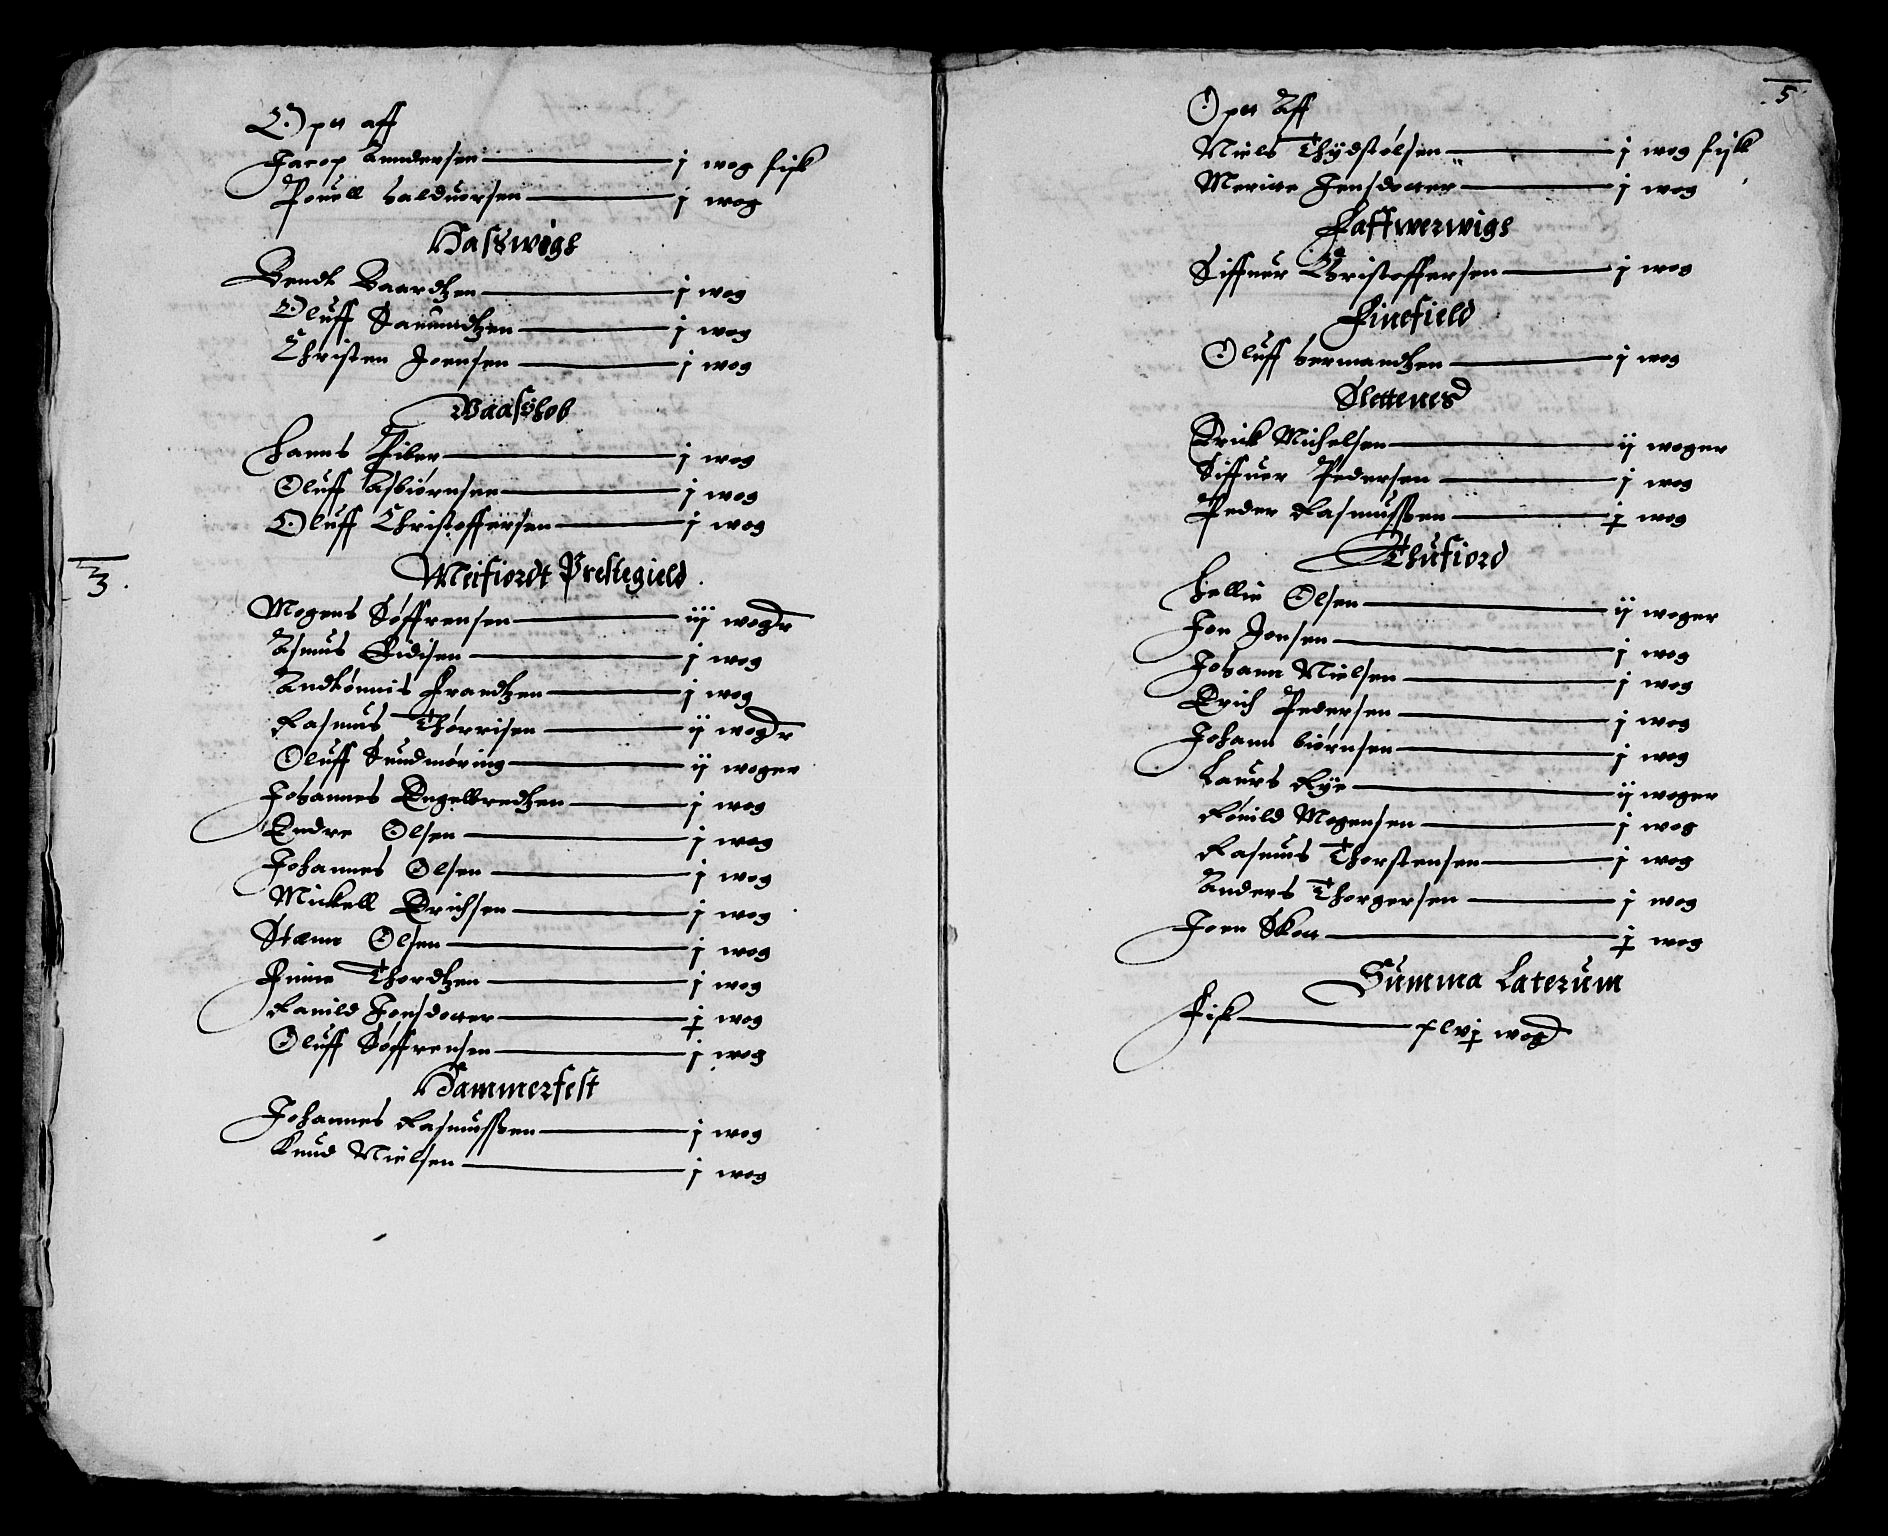 Opet aff
Jacop Anndersen j wog fisk
Pouell Halduorsen j wog
Hasswigh
Bendt Baardtzen j wog
Oluff Samundtzen j wog
Christen Joensen j wog
Waasshob
Hanns Piber j wog
Oluff Asbiørnsen j wog
Oluff Christoffersen j wog
3
Meifiordt Prestegield
Mogens Søffrensen iij woger
Asmus j wog
Andtønnis Frandtzen j wog
Rasmus Thørrisen ij woger
Oluff Sundmøring ij woger
Johannes Engelbredtzen j wog
Endre Olsen j wog
Johannes Olsen j wog
Mickell Erichsen j wog
Olsen j wog
Finne Thordtzen j wog
Ranild Jonsdotter j wog
Oluff Søffrensen j wog
Hammerfest
Johannes Rasmussen j wog
Knud Nielsen j wog
5
Opet Aff
Niels Thydstølsen j wog fisk
Meritte Jensdotter j wog
Faffwerwigh
Siffuer Christoffersen j wog
Finefield
Oluff Hermandtzen j wog
Slettenes
Erick Michelsen ij woger
Siffuer Pedersen j wog
Peder Rasmussen j wog
Thufiord
Hellie Olsen ij woger
Jon Jonsen j wog
Johann Nielsen j wog
Erich Pedersen j wog
Johann biørnsen j wog
Laurs Rye ij woger
Rønild Mogensen j wog
Rasmus Thorstensen j wog
Anders Thorgersen j wog
Joen Skott j wog
Summa Laterum
Fisk xlvj wog